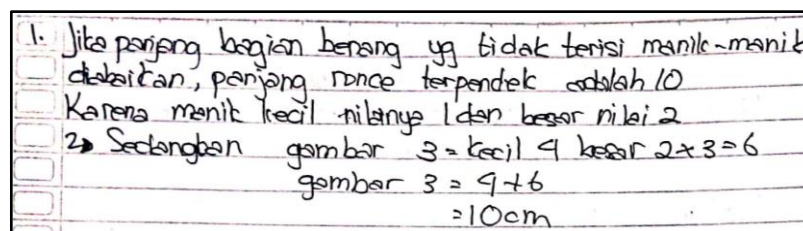 1. Jika panjang bagian benang yg tidak terisi manik-manik
diabaikan, panjang ronce terpendek adalah 10
Karena manik kecil nilanya 1 dan besar nilai 2
2 Sedangkan gambar 3 = kecil 4 besar 2 x 3 = 6
gambar 3 = 4 + 6
= 10 cm